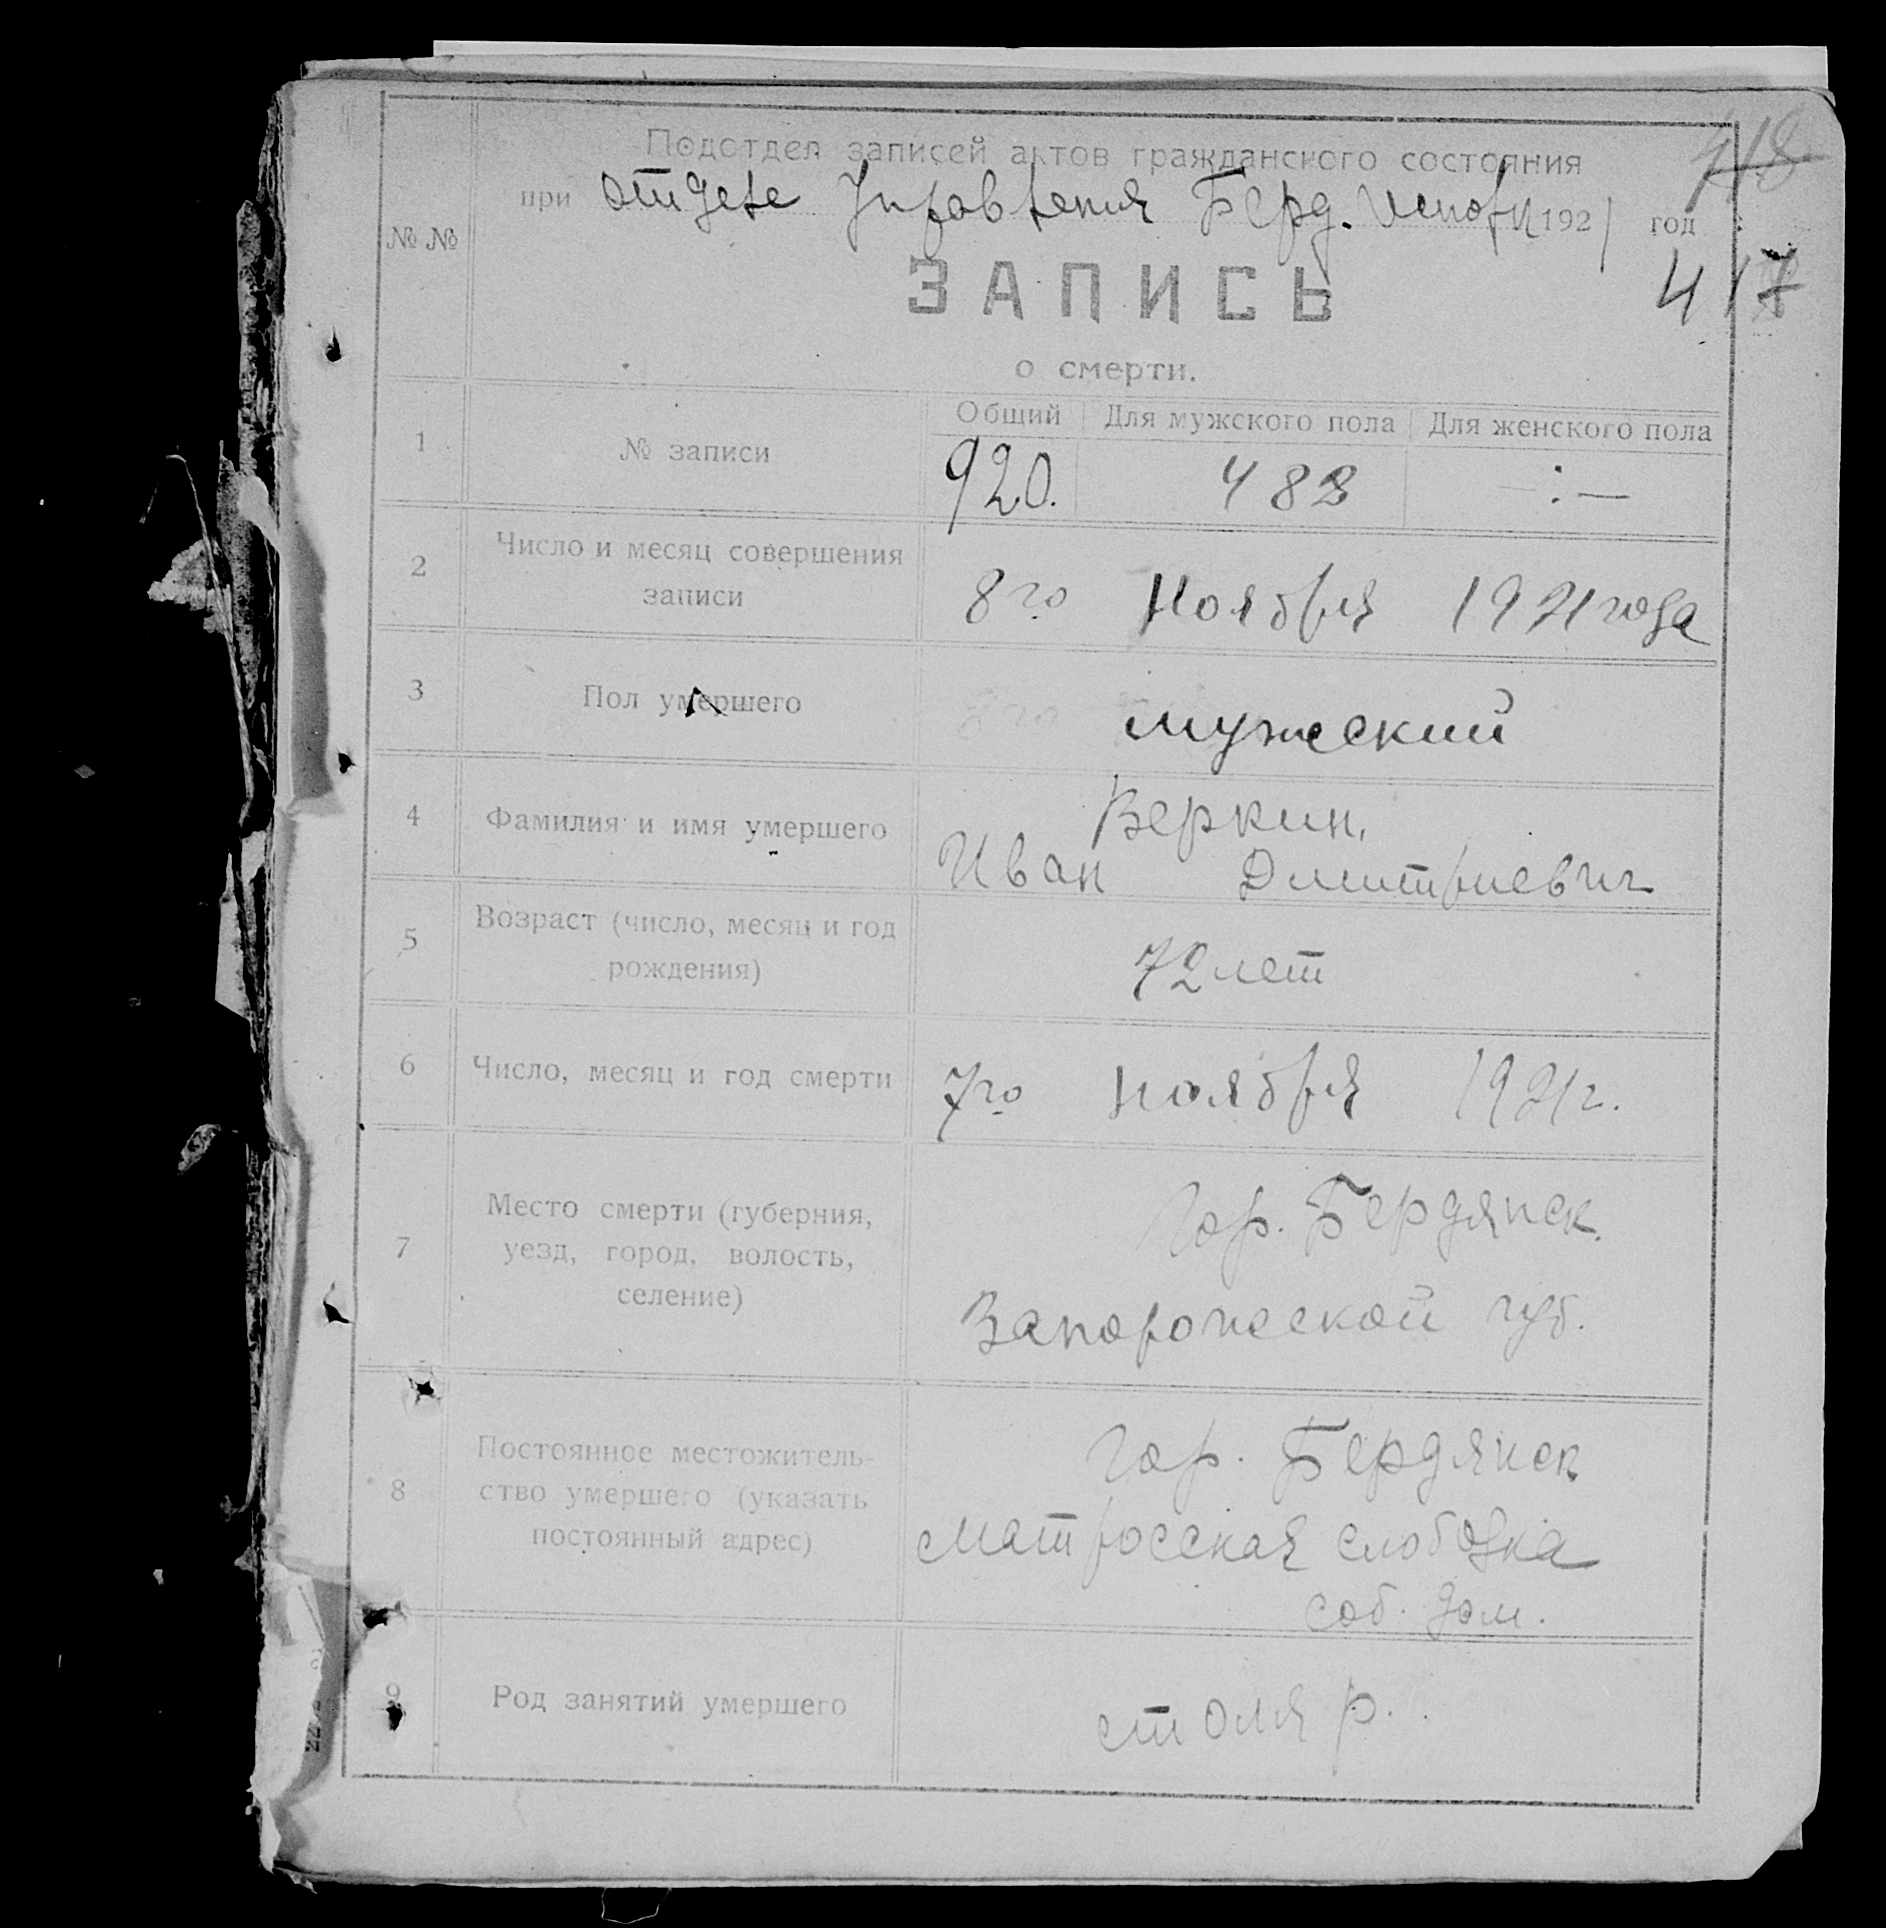 418
Подотдел записей актов гражданского состояния
при отделе Управления Берд. Исполк 1921 год
№ №
417
ЗАПИСЬ
о смерти.
Общий Для мужского пола Для женского пола
1 № записи 920. 483 —:—
2 Число и месяц совершения
записи
8го Ноября 1921 года
3 Пол умершего мужеский
4 Фамилия и имя умершего
Веркин,
Иван Дмитриевич
5 Возраст (число, месяц и год
рождения)
72 лет
6 Число, месяц и год смерти 7го ноября 1921 г.
7 Место смерти (губерния,
уезд, город, волость,
селение)
Гор. Бердянск.
Запорожской губ.
8 Постоянное местожитель-
ство умершего (указать
постоянный адрес)
Гор. Бердянск
Матросская слободка
соб. дом.
9 Род занятий умершего столяр.